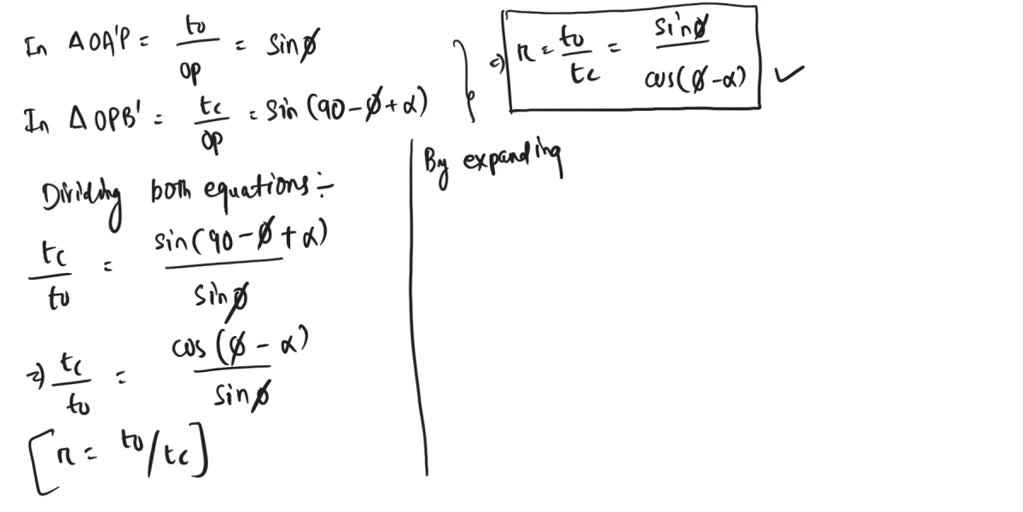 In ΔOA'P = to/OP = sinφ
In ΔOPB' = tc/OP = sin(90-φ+α)
⇒ r = to/tc = sinφ/cos(φ-α) ✓
Dividing both equations:-
tc/to = sin(90-φ+α)/sinφ
⇒ tc/to = cos(φ-α)/sinφ
[r = to/tc]
By expanding